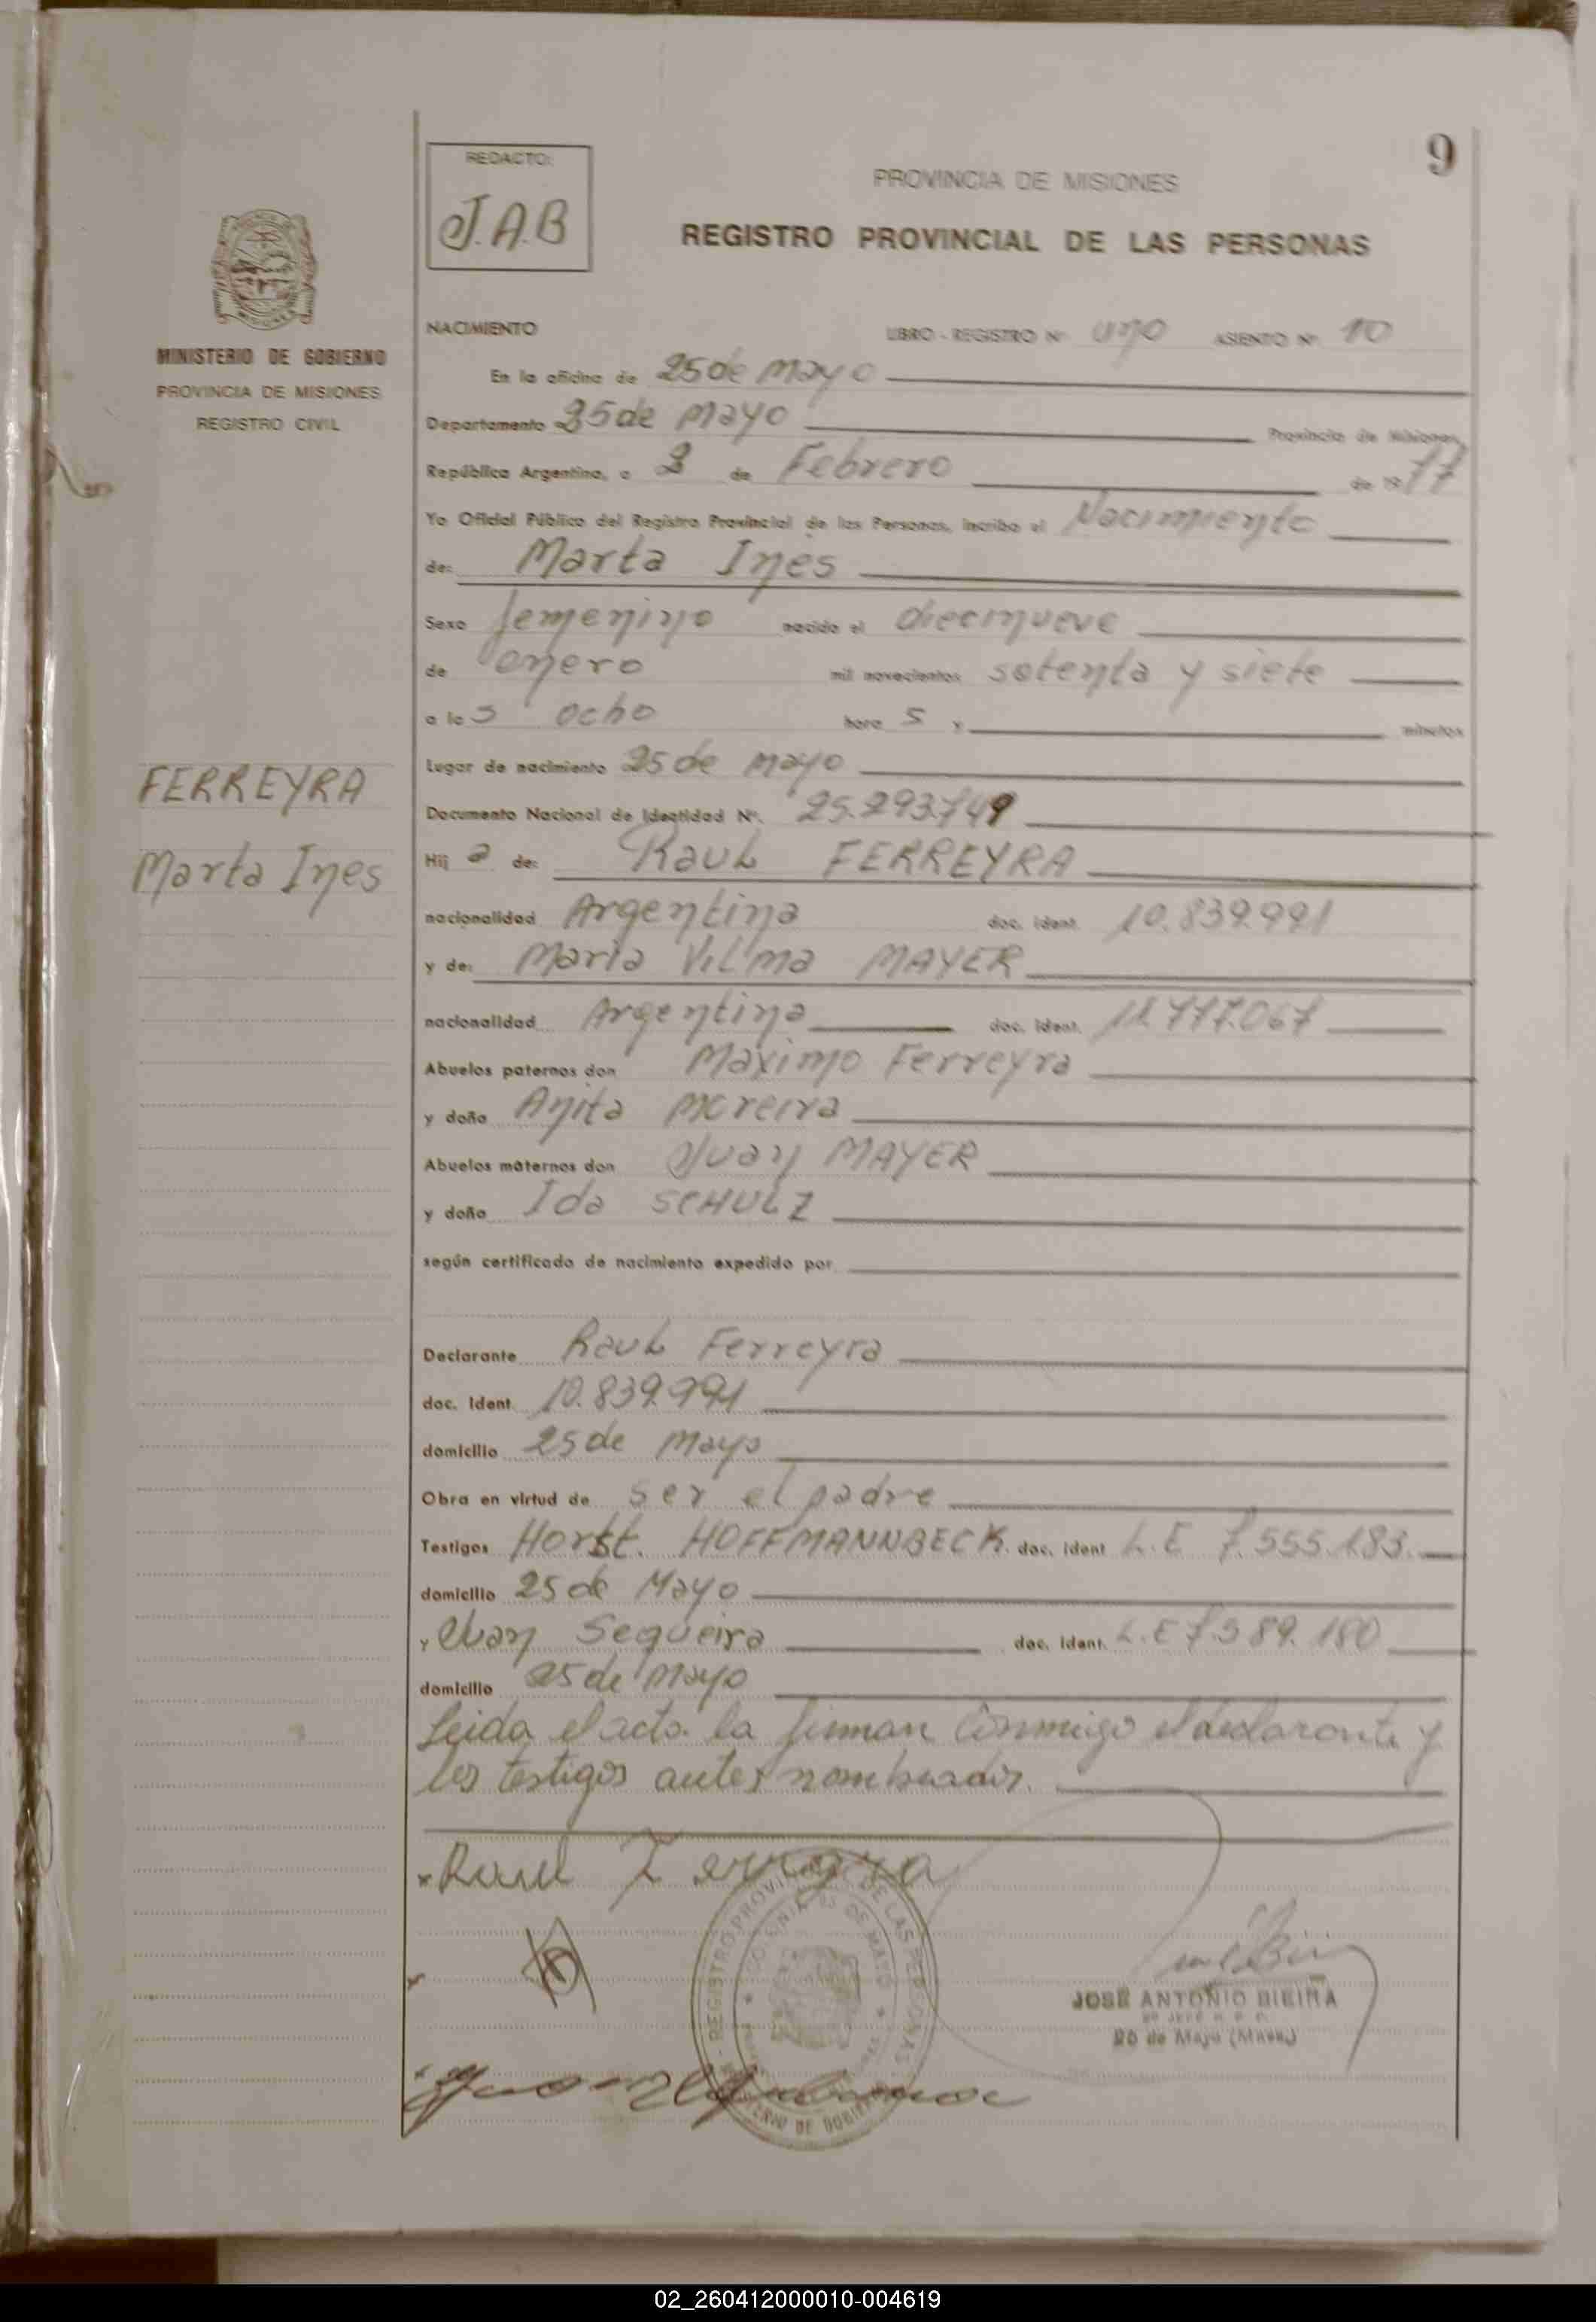 9
REDACTO:
J.A.B
PROVINCIA DE MISIONES
REGISTRO PROVINCIAL DE LAS PERSONAS
MINISTERIO DE GOBIERNO
PROVINCIA DE MISIONES
REGISTRO CIVIL
NACIMIENTO LIBRO - REGISTRO Nº uno ASIENTO Nº 10
En la oficina de 25 de Mayo
Departamento 25 de Mayo Provincia de Misiones,
República Argentina, a 2 de Febrero de 1977
Yo Oficial Público del Registro Provincial de las Personas, inscribo el Nacimiento
de: Marta Ines
Sexo femenino nacido el diecinueve
de enero mil novecientos setenta y siete
a las ocho hora s y minutos
Lugar de nacimiento 25 de Mayo
Documento Nacional de Identidad Nº. 25.293.749
FERREYRA
Marta Ines
Hij a de: Raul FERREYRA
nacionalidad Argentina doc. ident. 10.839.991
y de: Maria Vilma MAYER
nacionalidad Argentina doc. ident. 11.777.067
Abuelos paternos don Maximo Ferreyra
y doña Anita Moreira
Abuelos maternos don Juan MAYER
y doña Ida SCHULZ
según certificado de nacimiento expedido por
Declarante Raul Ferreyra
doc. Ident. 10.839.991
domicilio 25 de Mayo
Obra en virtud de ser el padre
Testigos Horst. HOFFMANNBECK. doc. ident L.E 7.555.183.
domicilio 25 de Mayo
y Juan Sequeira doc. ident. L.E 7.589.180
domicilio 25 de Mayo
Leida el acta la firman conmigo el declarante y
los testigos antes nombrados.
Raul Ferreyra
REGISTRO PROVINCIAL DE LAS PERSONAS
COLONIA 25 DE MAYO
MINISTERIO DE GOBIERNO
JOSE ANTONIO BIEIRA
25 de Mayo (Mnes.)
02_260412000010-004619